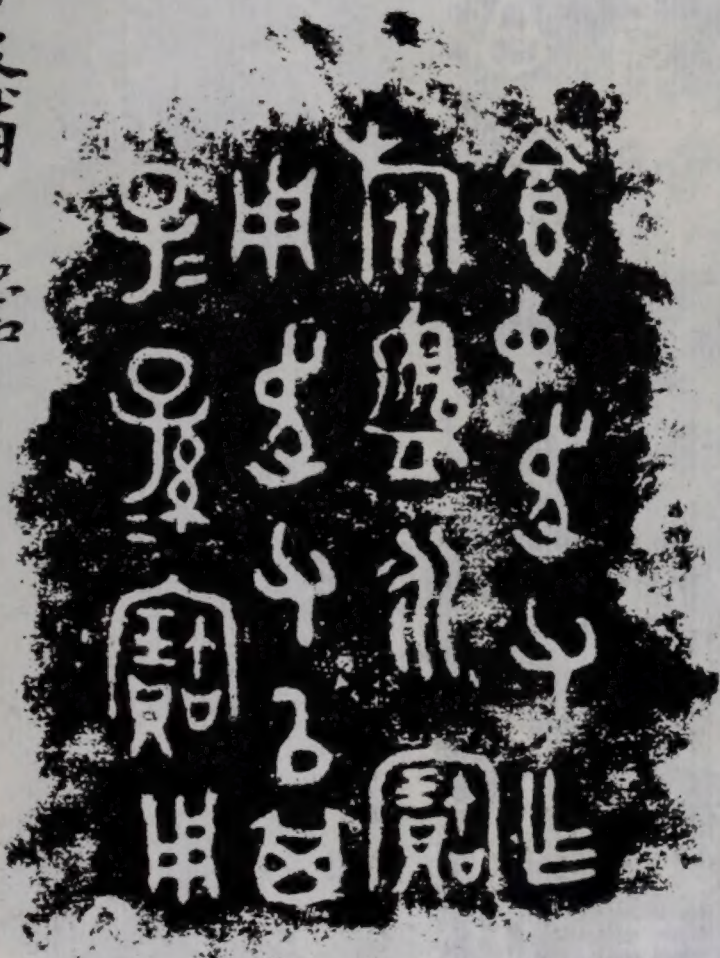 食中走父乍
旅盨永寶
用走父㠯其
子=孫=寶用